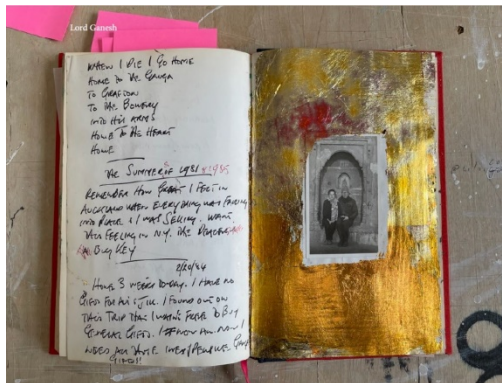 Lord Ganesh
WHEN I DIE I GO HOME
HOME TO THE GANGA
TO GRAFTON
TO THE BOWERY
INTO HIS ARMS
HOME TO THE HEART
HOME
THE SUMMER OF 1981 1985
REMEMBER HOW GREAT I FELT IN
AUCKLAND WHEN EVERYTHING WAS FALLING
INTO PLACE & I WAS SELLING. WANT
THIS FEELING IN N.Y. THE
A BIG KEY
2/20/84
HOME 3 WEEKS TODAY. I HAVE NO
GIFTS FOR I FOUND OUT ON
THIS TRIP THAT I WANT TO BUY
GENERAL GIFTS.
NEED
GIFTS!!